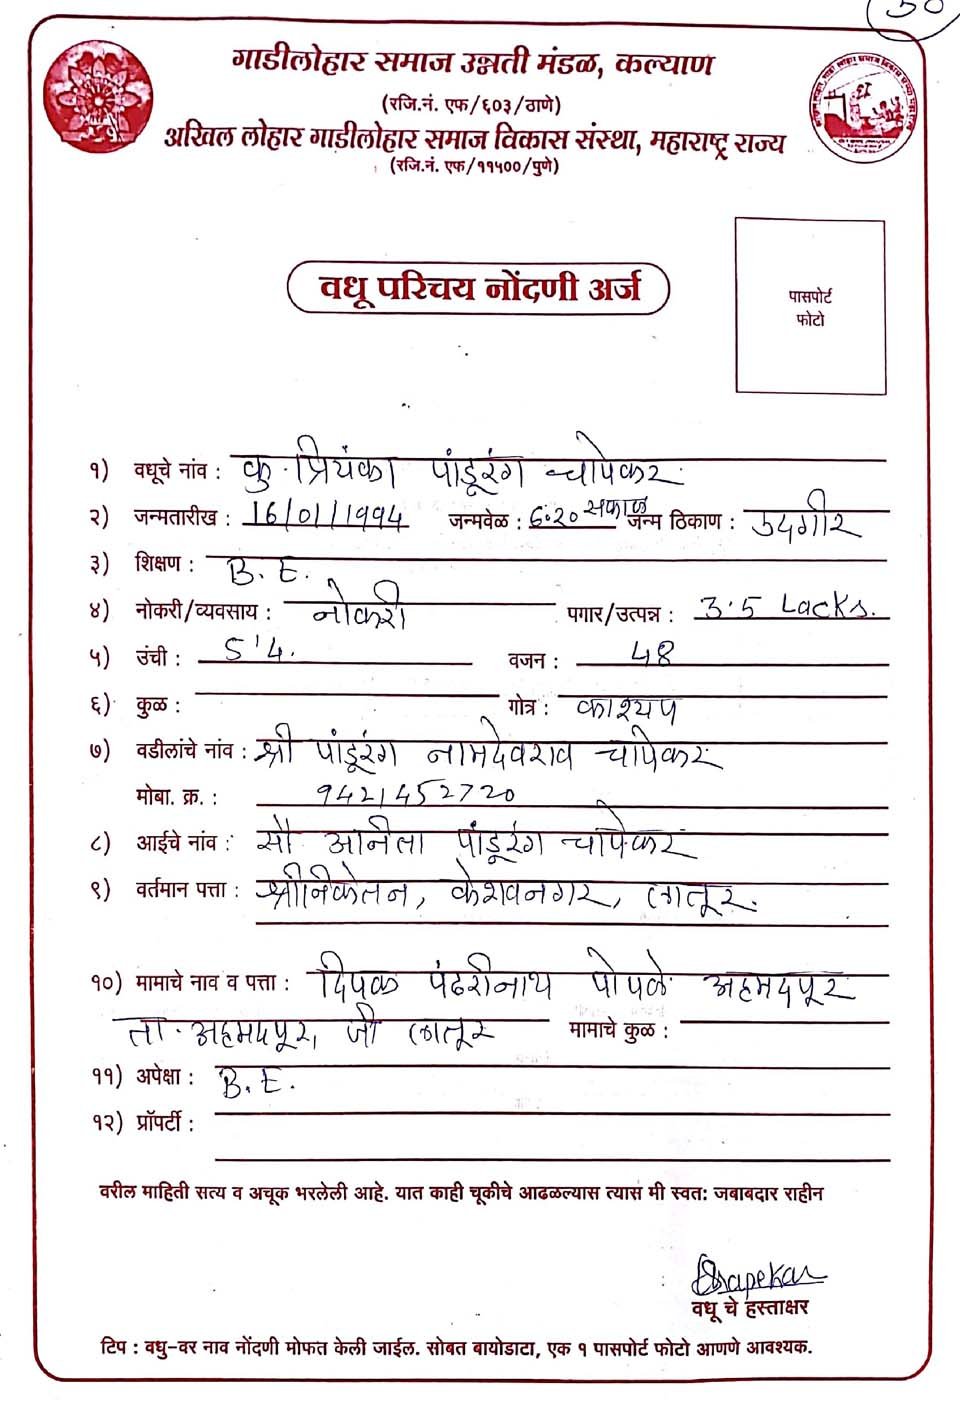 30
गाडीलोहार समाज उन्नती मंडळ, कल्याण
(रजि.नं. एफ/६०३/ठाणे)
अखिल लोहार गाडीलोहार समाज विकास संस्था, महाराष्ट्र राज्य
(रजि.नं. एफ/११५००/पुणे)
पासपोर्ट
फोटो
वधू परिचय नोंदणी अर्ज
१) वधूचे नांव : कु. प्रियंका पांडूरंग चापेकर
२) जन्मतारीख : 16/01/1994 जन्मवेळ : 6:20 सकाळ जन्म ठिकाण : उदगीर
३) शिक्षण : B. E.
४) नोकरी/व्यवसाय : नोकरी पगार/उत्पन्न : 3.5 Lacks.
५) उंची : 5'4. वजन : 48
६) कुळ : गोत्र : काश्यप
७) वडीलांचे नांव : श्री पांडूरंग नामदेवराव चापेकर
मोबा. क्र. : 9421452720
८) आईचे नांव : सौ अनिता पांडूरंग चापेकर
९) वर्तमान पत्ता : श्रीनिकेतन, केशवनगर, लातूर.
१०) मामाचे नाव व पत्ता : दिपक पंढरीनाथ पोपळे अहमदपूर
ता. अहमदपूर, जी लातूर मामाचे कुळ :
११) अपेक्षा : B. E.
१२) प्रॉपर्टी :
वरील माहिती सत्य व अचूक भरलेली आहे. यात काही चूकीचे आढळल्यास त्यास मी स्वत: जबाबदार राहीन
Chapekar
वधू चे हस्ताक्षर
टिप : वधु-वर नाव नोंदणी मोफत केली जाईल. सोबत बायोडाटा, एक १ पासपोर्ट फोटो आणणे आवश्यक.